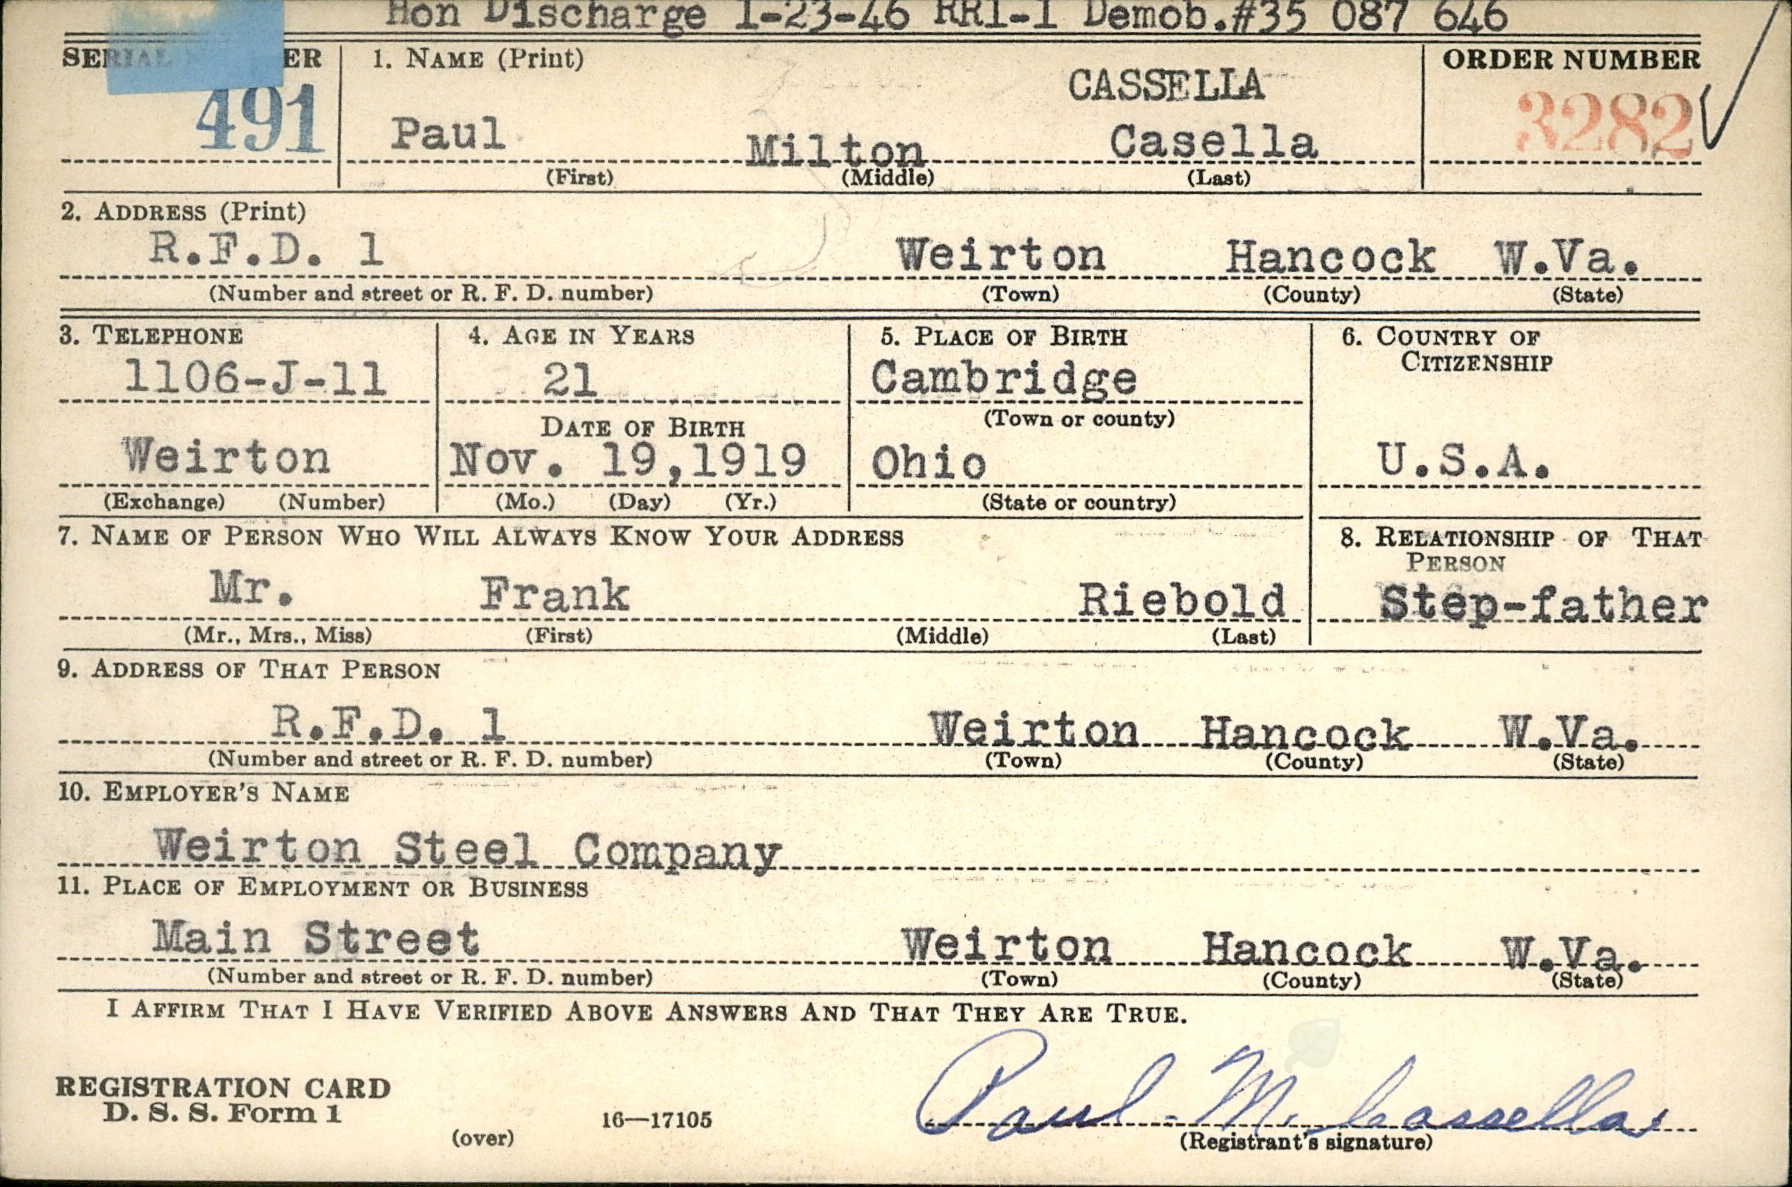 Hon Discharge 1-23-46 RR1-1 Demob.#35 087 646
SERIAL NUMBER 1. NAME (Print) ORDER NUMBER
CASSELLA
491 Paul Milton Casella 3282
(First) (Middle) (Last)
2. ADDRESS (Print)
R.F.D. 1 Weirton Hancock W.Va.
(Number and street or R. F. D. number) (Town) (County) (State)
3. TELEPHONE 4. AGE IN YEARS 5. PLACE OF BIRTH 6. COUNTRY OF
CITIZENSHIP
1106-J-11 21 Cambridge
DATE OF BIRTH (Town or county)
Weirton Nov. 19,1919 Ohio U.S.A.
(Exchange) (Number) (Mo.) (Day) (Yr.) (State or country)
7. NAME OF PERSON WHO WILL ALWAYS KNOW YOUR ADDRESS 8. RELATIONSHIP OF THAT
PERSON
Mr. Frank Riebold Step-father
(Mr., Mrs., Miss) (First) (Middle) (Last)
9. ADDRESS OF THAT PERSON
R.F.D. 1 Weirton Hancock W.Va.
(Number and street or R. F. D. number) (Town) (County) (State)
10. EMPLOYER'S NAME
Weirton Steel Company
11. PLACE OF EMPLOYMENT OR BUSINESS
Main Street Weirton Hancock W.Va.
(Number and street or R. F. D. number) (Town) (County) (State)
I AFFIRM THAT I HAVE VERIFIED ABOVE ANSWERS AND THAT THEY ARE TRUE.
REGISTRATION CARD
D. S. S. Form 1 Paul M. Cassella
(over) 16—17105 (Registrant's signature)